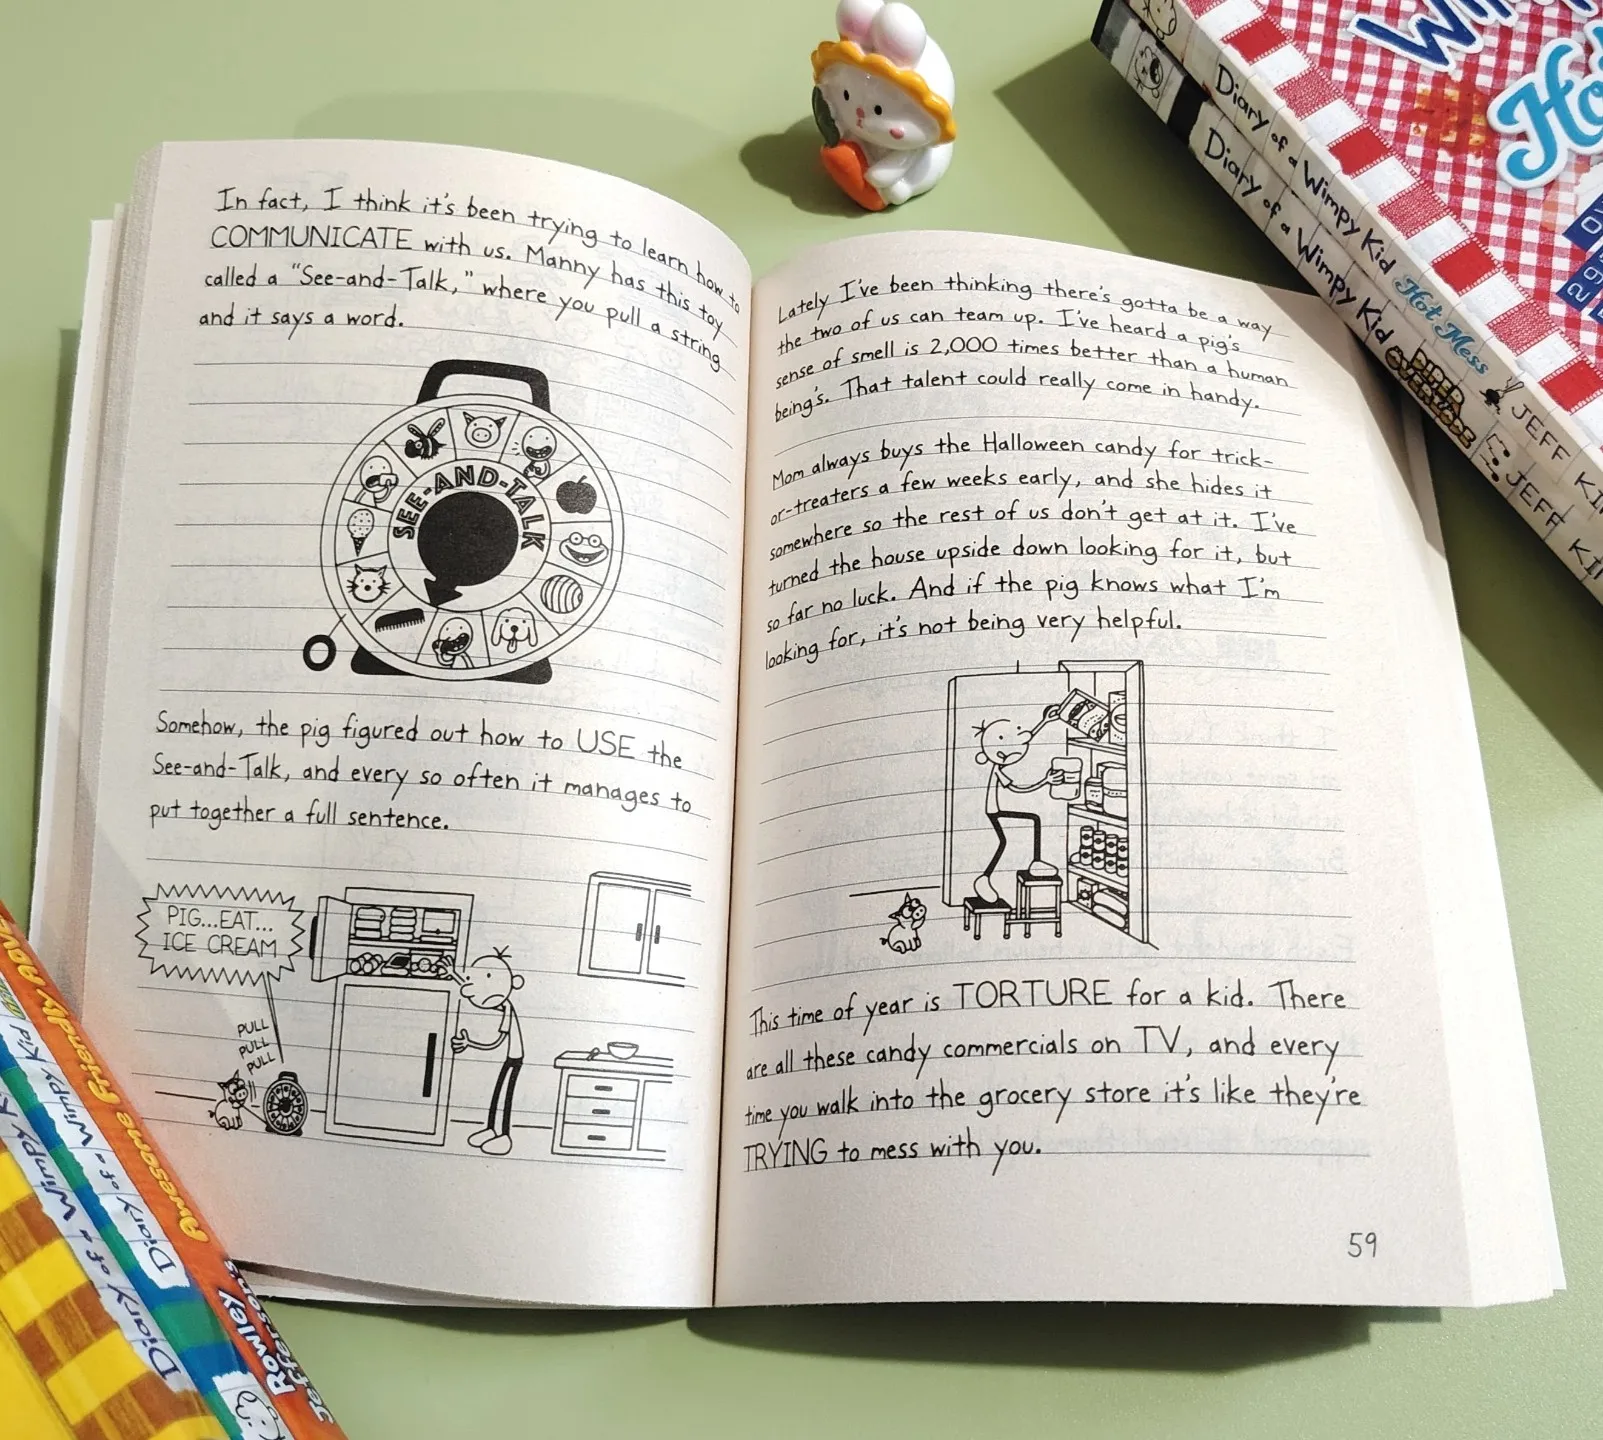 In fact, I think it's been trying to learn how to
COMMUNICATE with us. Manny has this toy
called a "See-and-Talk," where you pull a string
and it says a word.
SEE-AND-TALK
Somehow, the pig figured out how to USE the
See-and-Talk, and every so often it manages to
put together a full sentence.
PIG...EAT...
ICE CREAM
PULL
PULL
PULL
Lately I've been thinking there's gotta be a way
the two of us can team up. I've heard a pig's
sense of smell is 2,000 times better than a human
being's. That talent could really come in handy.
Mom always buys the Halloween candy for trick-
or-treaters a few weeks early, and she hides it
somewhere so the rest of us don't get at it. I've
turned the house upside down looking for it, but
so far no luck. And if the pig knows what I'm
looking for, it's not being very helpful.
This time of year is TORTURE for a kid. There
are all these candy commercials on TV, and every
time you walk into the grocery store it's like they're
TRYING to mess with you.
59
Diary of a Wimpy Kid Hot Mess JEFF
Diary of a Wimpy Kid DIPER ÖVERLÖDE JEFF
Awesome Friendly Rowley Jefferson's
Diary of a Wimpy Kid
Diary of a Wimpy